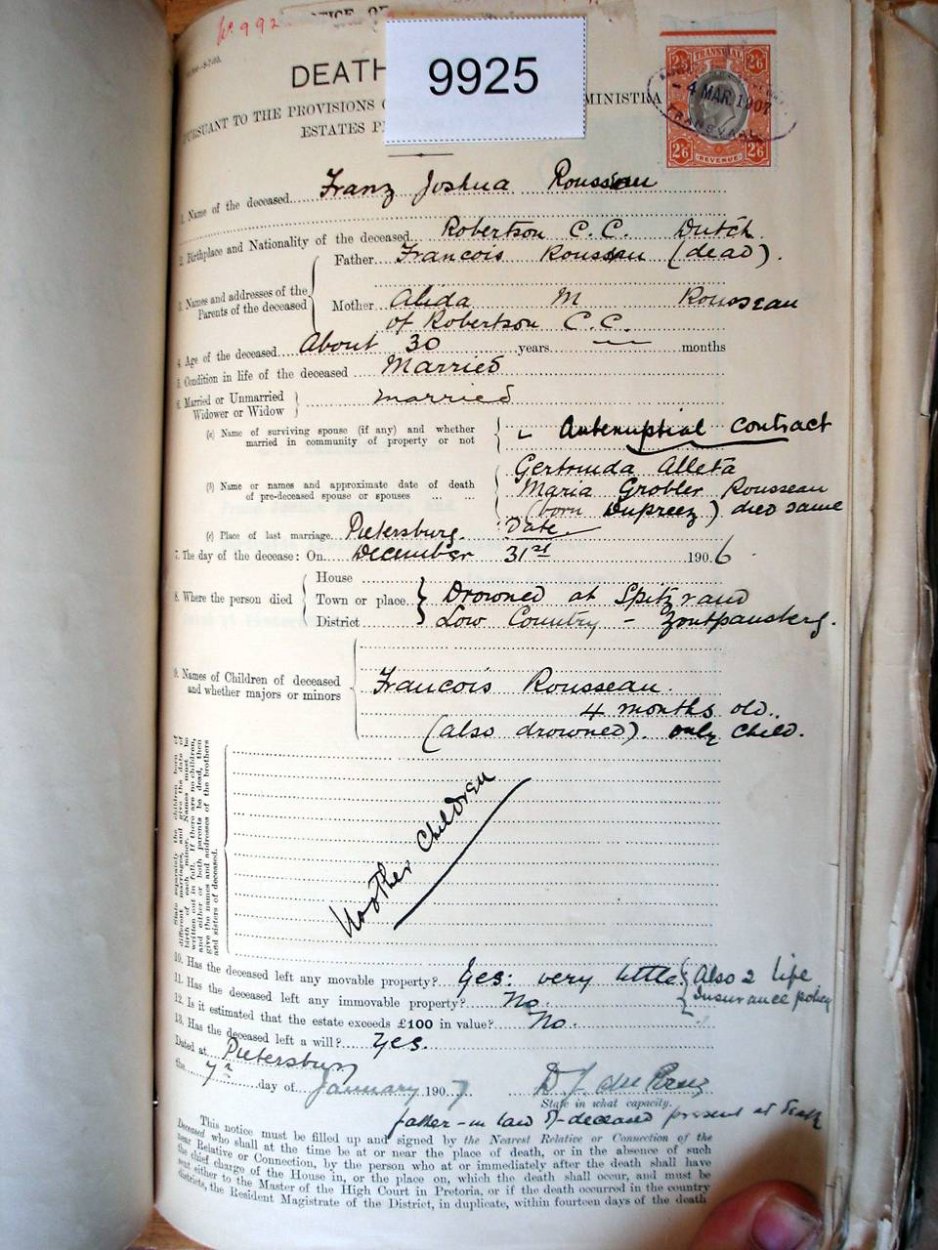 No 992
TICE OF
DEATH
9925
PURSUANT TO THE PROVISIONS O MINISTRA
ESTATES P
TRANSVAAL
2/6 2/6
- 4 MAR 1907
TRANSVAAL
2/6 REVENUE 2/6
1. Name of the deceased Franz Joshua Rousseau
2. Birthplace and Nationality of the deceased Robertson C.C. Dutch
3. Names and addresses of the Parents of the deceased
Father Francois Rousseau (dead).
Mother Alida M Rousseau
of Robertson C.C.
4. Age of the deceased About 30 years — months
5. Condition in life of the deceased Married
6. Married or Unmarried Widower or Widow married
(a) Name of surviving spouse (if any) and whether married in community of property or not
Antenuptial contract
(b) Name or names and approximate date of death of pre-deceased spouse or spouses ... ...
Gertruida Alleta
Maria Grobler Rousseau
(born Dupreez) died same
Date
(c) Place of last marriage Pietersburg.
7. The day of the decease: On December 31st 1906
8. Where the person died
House
Town or place Drowned at Spitzrand
District Low Country - Zoutpansberg.
9. Names of Children of deceased and whether majors or minors
Francois Rousseau.
4 months old.
(also drowned). only child.
State separately the children born of
different marriages, and give the date of
birth of each minor. Names must be
written out in full. If there are no children,
and either or both parents be dead, then
give the names and addresses of the brothers
and sisters of deceased.
No other Children
10. Has the deceased left any movable property? Yes: very little. Also 2 life
11. Has the deceased left any immovable property? No. Insurance policy
12. Is it estimated that the estate exceeds £100 in value? No.
13. Has the deceased left a will? Yes.
Dated at Pietersburg
the 7th day of January 1907 D J du Preez
State in what capacity.
father-in law of deceased present at death
This notice must be filled up and signed by the Nearest Relative or Connection of the
Deceased who shall at the time be at or near the place of death, or in the absence of such
near Relative or Connection, by the person who at or immediately after the death shall have
the chief charge of the House in, or the place on, which the death shall occur, and must be
sent either to the Master of the High Court in Pretoria, or if the death occurred in the country
districts, the Resident Magistrate of the District, in duplicate, within fourteen days of the death